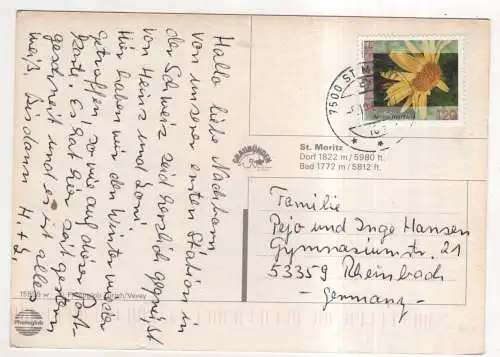 Hallo liebe Nachbarn
von unserer ersten Station in
der Schweiz seid herzlich gegrüßt
von Heinz und Loni.
Hier haben wir den Winter wieder
getroffen, so wie auf dieser Post-
karte. Es hat hier seit gestern
geschneit und es ist alles
weiß. Bis dann H. + L.
7500 ST. M
120
GRAUBÜNDEN
St. Moritz
Dorf 1822 m / 5980 ft.
Bad 1772 m / 5812 ft.
Familie
Pejo und Inge Hansen
Gymnasiumstr. 21
53359 Rheinbach
- Germany -
/Vevey
Photoglob